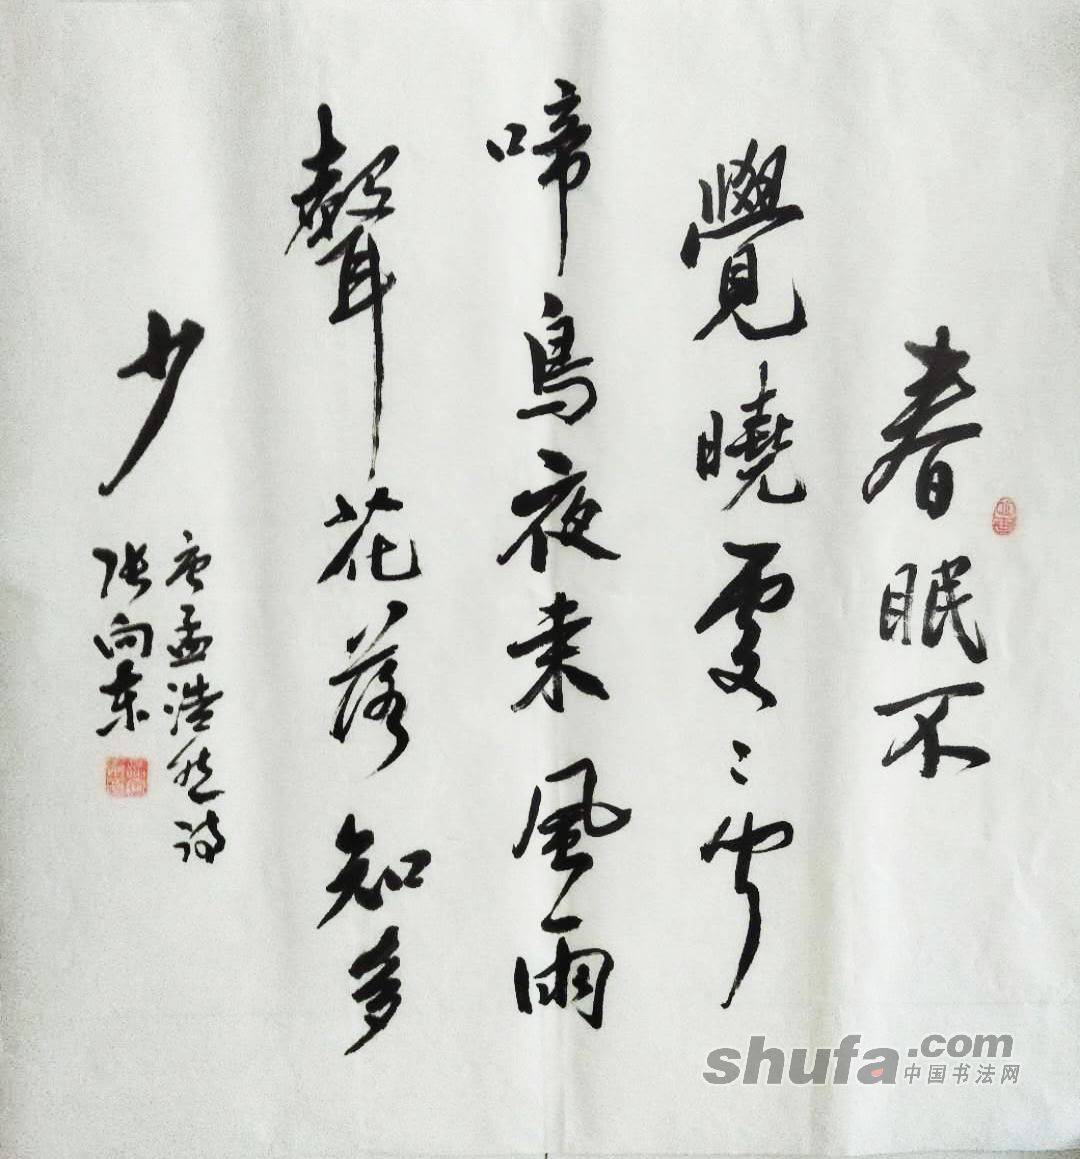 春眠不
覺曉處〻聞
啼鳥夜来風雨
聲花落知多
少
唐孟浩然诗
张向东
shufa.com
中国书法网